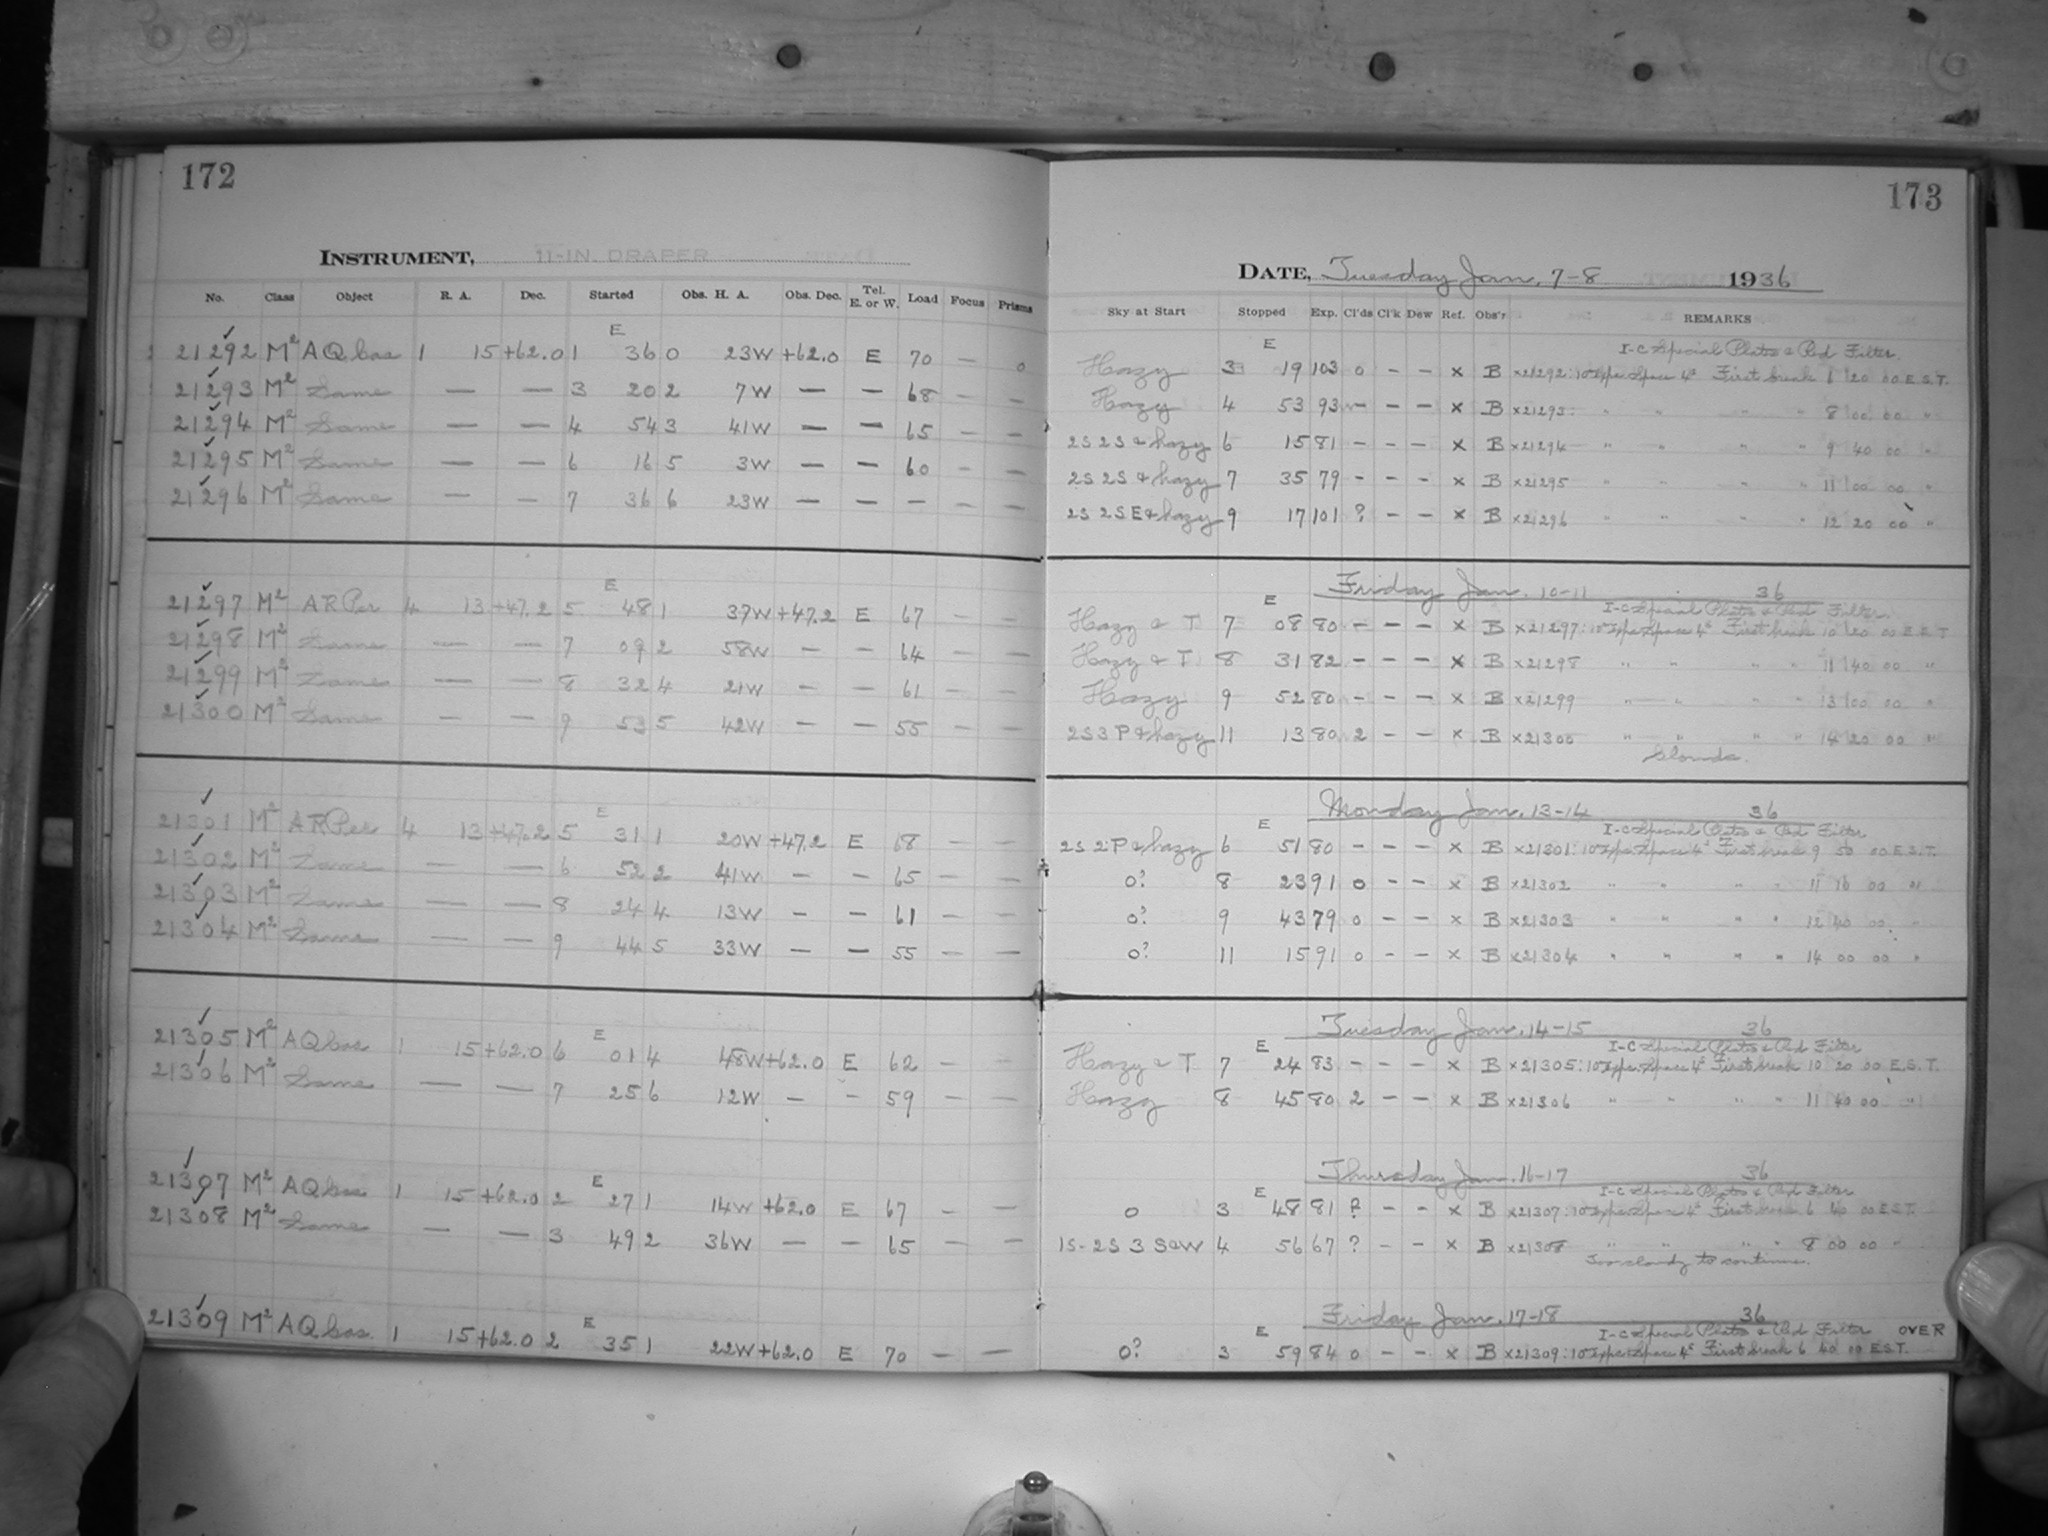 172
INSTRUMENT, 11-IN. DRAPER
No. Class Object R. A. Dec. Started Obs. H. A. Obs. Dec. Tel. E. or W. Load Focus Prisms
E
21292 M² AQ Cas 1 15 +62.0 1 36 0 23W +62.0 E 70 — 0
21293 M² Same — — 3 20 2 7W — — 68 — —
21294 M² Same — — 4 54 3 41W — — 65 — —
21295 M² Same — — 6 16 5 3W — — 60 — —
21296 M² Same — — 7 36 6 23W — — — — —
E
21297 M² AR Per 4 13 +47.2 5 48 1 37W +47.2 E 67 — —
21298 M² Same — — 7 09 2 58W — — 64 — —
21299 M² Same — — 8 32 4 21W — — 61 — —
21300 M² Same — — 9 53 5 42W — — 55 — —
E
21301 M² AR Per 4 13 +47.2 5 31 1 20W +47.2 E 68 — —
21302 M² Same — — 6 52 2 41W — — 65 — —
21303 M² Same — — 8 24 4 13W — — 61 — —
21304 M² Same — — 9 44 5 33W — — 55 — —
E
21305 M² AQ Cas 1 15 +62.0 6 01 4 48W +62.0 E 62 — —
21306 M² Same — — 7 25 6 12W — - 59 — —
E
21307 M² AQ Cas 1 15 +62.0 2 27 1 14W +62.0 E 67 — —
21308 M² Same — — 3 49 2 36W — — 65 — —
E
21309 M² AQ Cas. 1 15 +62.0 2 35 1 22W +62.0 E 70 — —
173
DATE, Tuesday Jan. 7-8 1936
Sky at Start Stopped Exp. Cl'ds Cl'k Dew Ref. Obs'r REMARKS
E I-C Special Plates & Red Filter.
Hazy 3 19 103 0 - - x B x21292: 10 Exps. Space 4ˢ First break 20 00 E.S.T.
Hazy 4 53 93 - - - x B x21293: " " " " 8 00 00 "
2S 2S & hazy 6 15 81 - - - x B x21294 " " " " 9 40 00 "
2S 2S & hazy 7 35 79 - - - x B x21295 " " " " 11 00 00 "
2S 2S E & hazy 9 17 101 ? - - x B x21296 " " " " 12 20 00 "
Friday Jan. 10-11 36
E I-C Special Plates & Red Filter.
Hazy & T 7 08 80 - - - x B x21297: 10 Exps. Space 4ˢ First break 10 20 00 E.S.T
Hazy & T 8 31 82 - - - x B x21298 " " " " 11 40 00 "
Hazy 9 52 80 - - - x B x21299 " " " " 13 00 00 "
2S 3 P & hazy 11 13 80 2 - - x B x21300 " " " " 14 20 00 "
Clouds.
Monday Jan. 13-14 36
E I-C Special Plates & Red Filter
2S 2 P & hazy 6 51 80 - - - x B x21301: 10 Exps. Space 4ˢ First break 9 50 00 E.S.T.
0? 8 23 91 0 - - x B x21302 " " " " 11 10 00 "
0? 9 43 79 0 - - x B x21303 " " " " 12 40 00 "
0? 11 15 91 0 - - x B x21304 " " " " 14 00 00 "
Tuesday Jan. 14-15 36
E I-C Special Plates & Red Filter
Hazy & T 7 24 83 - - - x B x21305: 10 Exps. Space 4ˢ First break 10 20 00 E.S.T.
Hazy 8 45 80 2 - - x B x21306 " " " " 11 40 00 "
Thursday Jan. 16-17 36
E I-C Special Plates & Red Filter
0 3 48 81 ? - - x B x21307: 10 Exps. Space 4ˢ First break 6 40 00 E.S.T.
1S-2S 3 S&W 4 56 67 ? - - x B x21308 " " " " 8 00 00 "
Too cloudy to continue.
Friday Jan. 17-18 36
E I-C Special Plates & Red Filter OVER
0? 3 59 84 0 - - x B x21309: 10 Exps. Space 4ˢ First break 6 40 10 E.S.T.